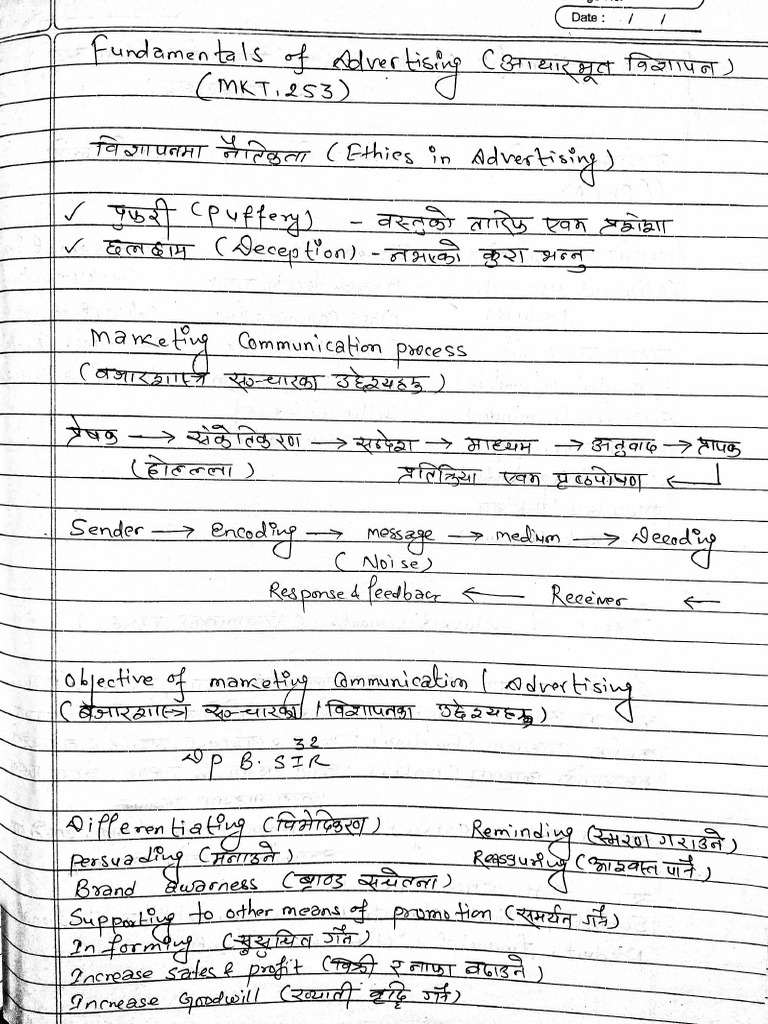 Date: / /
Fundamentals of Advertising (आधारभूत विज्ञापन)
(MKT.253)
विज्ञापनमा नैतिकता (Ethics in Advertising)
✓ पुफरी (Puffery) - वस्तुको तारिफ एवम प्रशंशा
✓ छलछाम (Deception) - नभएको कुरा भन्नु
Marketing Communication process
(बजारशास्त्र सञ्चारका उद्देश्यहरु)
प्रेषक → संकेतिकरण → सन्देश → माध्यम → अनुवाद → प्रापक
(होहल्ला) प्रतिक्रिया एवम पृष्ठपोषण ←
Sender → encoding → message → medium → Decoding
(Noise)
Response & feedback ← Receiver ←
Objective of marketing Communication / Advertising
(बजारशास्त्र सञ्चारका / विज्ञापनका उद्देश्यहरु)
32
DP B. SIR
Differentiating (विभेदिकरण) Reminding (स्मरण गराउने)
Persuading (मनाउने) Reassuring (आश्वस्त पार्ने)
Brand awarness (ब्राण्ड सचेतना)
Supporting to other means of promotion (समर्थन गर्ने)
Informing (सुसुचित गर्ने)
Increase sales & profit (बिक्री र नाफा बढाउने)
Increase Goodwill (ख्याती वृद्धि गर्ने)